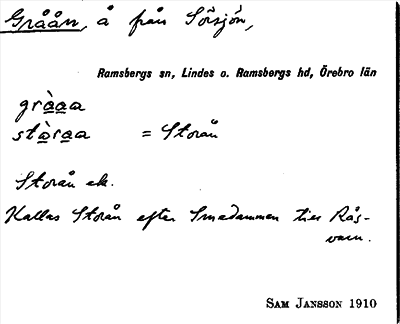 Gråån, å från Sörsjön,
Ramsbergs sn, Lindes o. Ramsbergs hd, Örebro län
gràaa
stàraa = Storån
Storån ek.
Kallas Storån efter Smedammen till Rås-
varn.
SAM JANSSON 1910